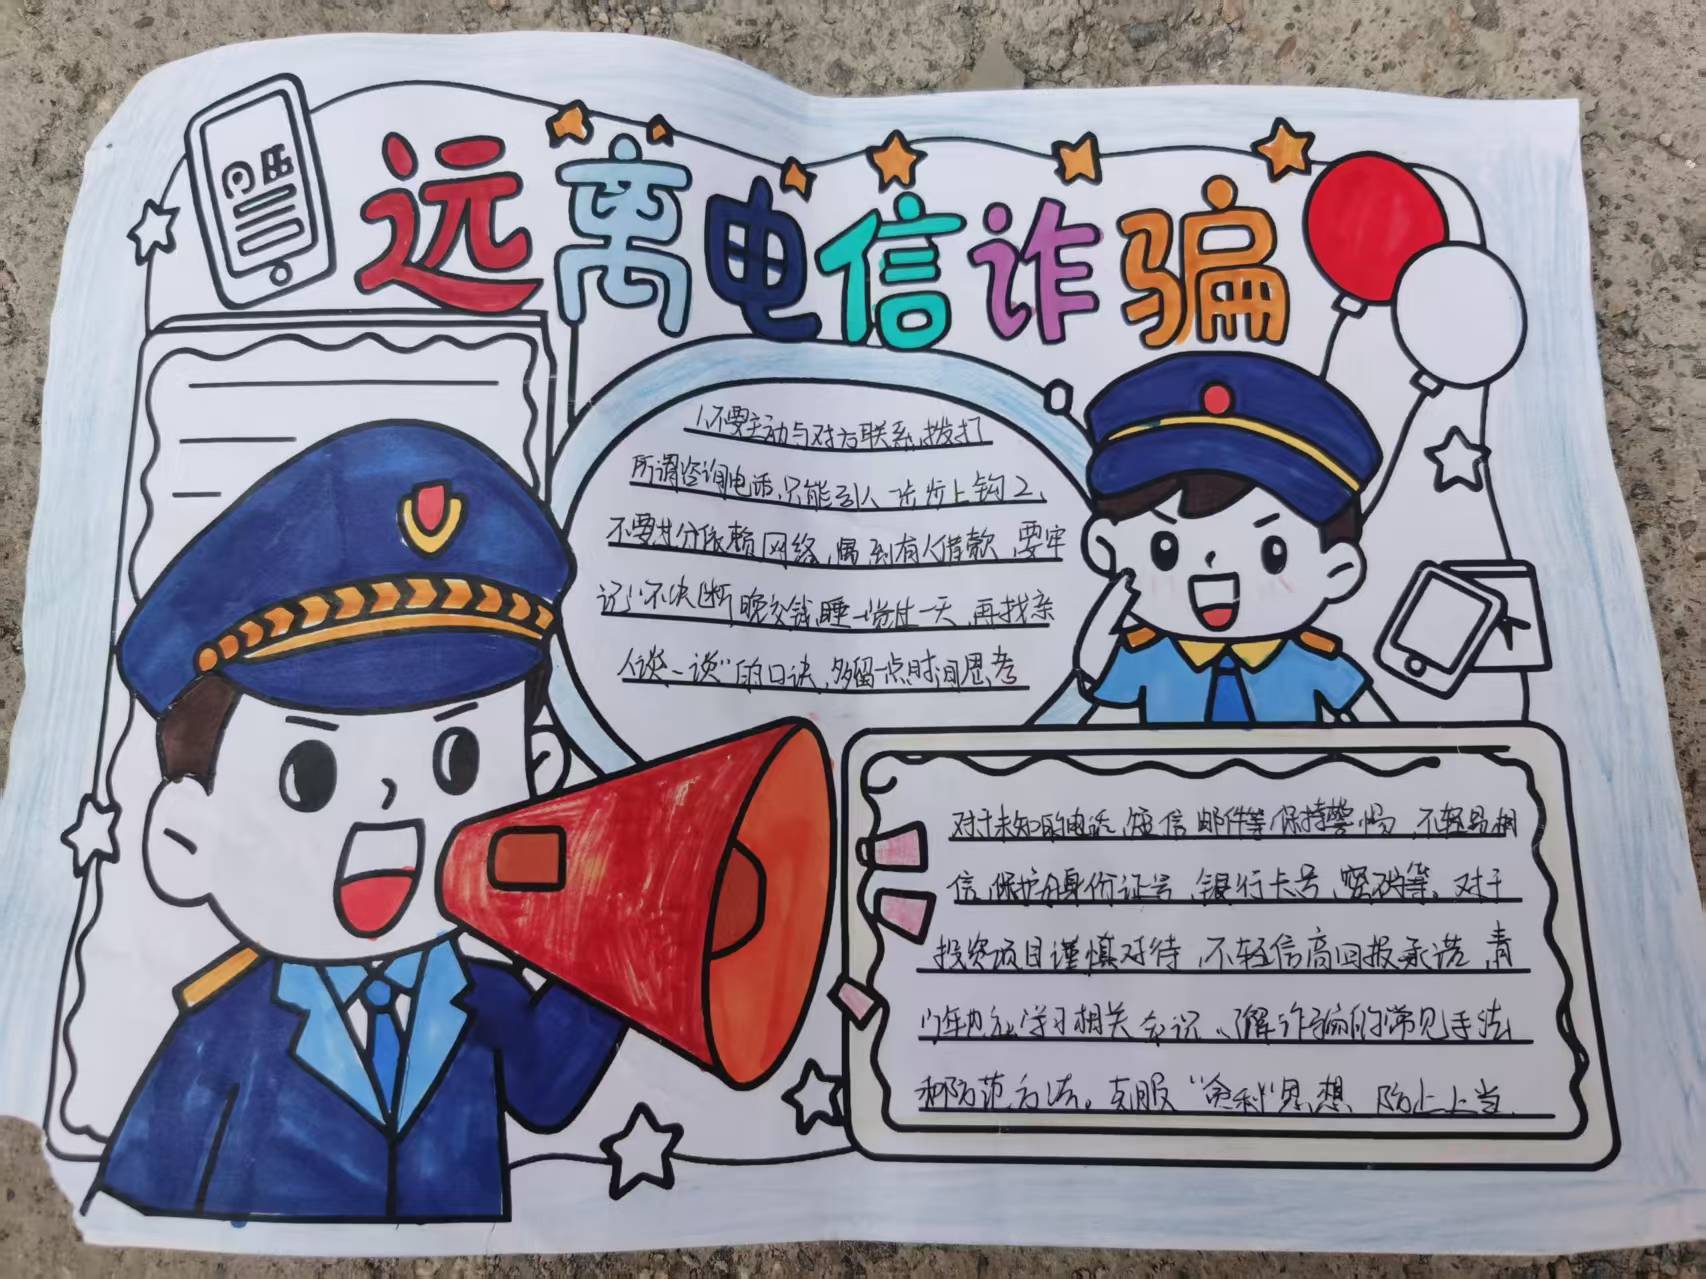 远离电信诈骗
1、不要主动与对方联系,拨打
所谓咨询电话,只能引人一步步上钩2、
不要过分依赖网络,遇到有人借款,要牢
记“不决断晚交钱,睡一觉过一天,再找亲
人谈一谈”的口诀,多留一点时间思考
对于未知的电话,短信邮件等保持警惕,不轻易相
信,保护身份证号,银行卡号,密码等。对于
投资项目谨慎对待,不轻信高回报承诺,青
少年应学习相关知识、了解诈骗的常见手法
和防范方法。克服“贪利”思想 防止上当